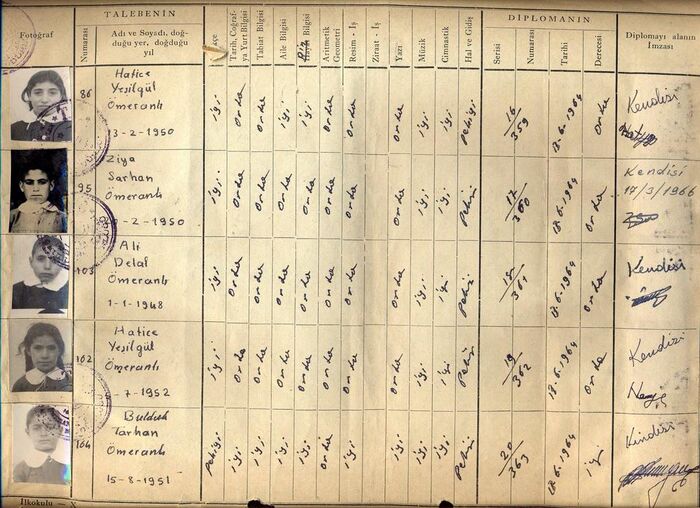 TALEBENİN
DİPLOMANIN
Fotoğraf
Numarası
Adı ve Soyadı, doğduğu yer, doğduğu yıl
Tarih, Coğrafya ve Yurt Bilgisi
Tabiat Bilgisi
Aile Bilgisi
Din
Bilgisi
Aritmetik Geometri
Resim - İş
Ziraat - İş
Yazı
Müzik
Cimnastik
Hal ve Gidiş
Serisi
Numarası
Tarihi
Derecesi
Diplomayı alanın İmzası
86
Hatice
Yeşilgül
Ömeranlı
3-2-1950
iyi Orta Orta iyi iyi Orta Orta Orta iyi iyi Pekiyi
16/359
18-6-1964
Orta
Kendisi
95
Ziya
Sarhan
Ömeranlı
-2-1950
iyi Orta Orta Orta Orta Orta Orta Orta iyi iyi Pekiyi
17/360
18-6-1964
Orta
Kendisi
17/3/1966
103
Ali
Delal
Ömeranlı
1-1-1948
iyi Orta Orta Orta Orta Orta Orta Orta iyi iyi Pekiyi
18/361
18-6-1964
Orta
Kendisi
102
Hatice
Yeşilgül
Ömeranlı
-7-1952
iyi Orta Orta Orta Orta Orta Orta Orta iyi iyi Pekiyi
19/362
18-6-1964
Orta
Kendisi
104
Tarhan
Ömeranlı
15-8-1951
Pekiyi iyi iyi iyi iyi Orta iyi iyi iyi iyi Pekiyi
20/363
18-6-1964
iyi
Kindisi
İlkokulu — X